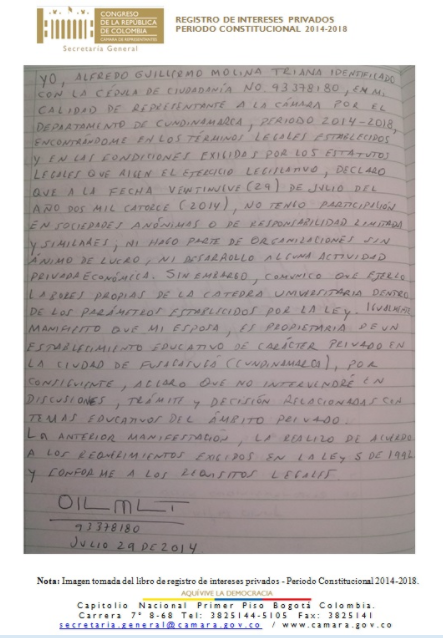 CONGRESO
DE LA REPÚBLICA
DE COLOMBIA
CÁMARA DE REPRESENTANTES
Secretaría General
REGISTRO DE INTERESES PRIVADOS
PERIODO CONSTITUCIONAL 2014-2018
YO, ALFREDO GUILLERMO MOLINA TRIANA IDENTIFICADO
CON LA CÉDULA DE CIUDADANÍA NO. 93378180, EN MI
CALIDAD DE REPRESENTANTE A LA CÁMARA POR EL
DEPARTAMENTO DE CUNDINAMARCA, PERIODO 2014-2018,
ENCONTRÁNDOME EN LOS TÉRMINOS LEGALES ESTABLECIDOS
Y EN LAS CONDICIONES EXIGIDAS POR LOS ESTATUTOS
LEGALES QUE RIGEN EL EJERCICIO LEGISLATIVO, DECLARO
QUE A LA FECHA VEINTINUEVE (29) DE JULIO DEL
AÑO DOS MIL CATORCE (2014), NO TENGO PARTICIPACIÓN
EN SOCIEDADES ANÓNIMAS O DE RESPONSABILIDAD LIMITADA
Y SIMILARES, NI HAGO PARTE DE ORGANIZACIONES SIN
ÁNIMO DE LUCRO, NI DESARROLLO ALGUNA ACTIVIDAD
PRIVADA ECONÓMICA. SIN EMBARGO, COMUNICO QUE EJERZO
LABORES PROPIAS DE LA CATEDRA UNIVERSITARIA DENTRO
DE LOS PARÁMETROS ESTABLECIDOS POR LA LEY. IGUALMENTE,
MANIFIESTO QUE MI ESPOSA, ES PROPIETARIA DE UN
ESTABLECIMIENTO EDUCATIVO DE CARÁCTER PRIVADO EN
LA CIUDAD DE FUSAGASUGÁ (CUNDINAMARCA), POR
CONSIGUIENTE, ACLARO QUE NO INTERVENDRÉ EN
DISCUSIONES, TRÁMITE Y DECISIÓN RELACIONADAS CON
TEMAS EDUCATIVOS DEL ÁMBITO PRIVADO.
LA ANTERIOR MANIFESTACIÓN, LA REALIZO DE ACUERDO
A LOS REQUERIMIENTOS EXIGIDOS EN LA LEY 5 DE 1992
Y CONFORME A LOS REQUISITOS LEGALES.
93378180
JULIO 29 DE 2014
Nota: Imagen tomada del libro de registro de intereses privados - Periodo Constitucional 2014-2018.
AQUÍVIVE LA DEMOCRACIA
Capitolio Nacional Primer Piso Bogotá Colombia.
Carrera 7ª 8-68 Tel: 3825144-5105 Fax: 3825141
secretaria.general@camara.gov.co / www.camara.gov.co